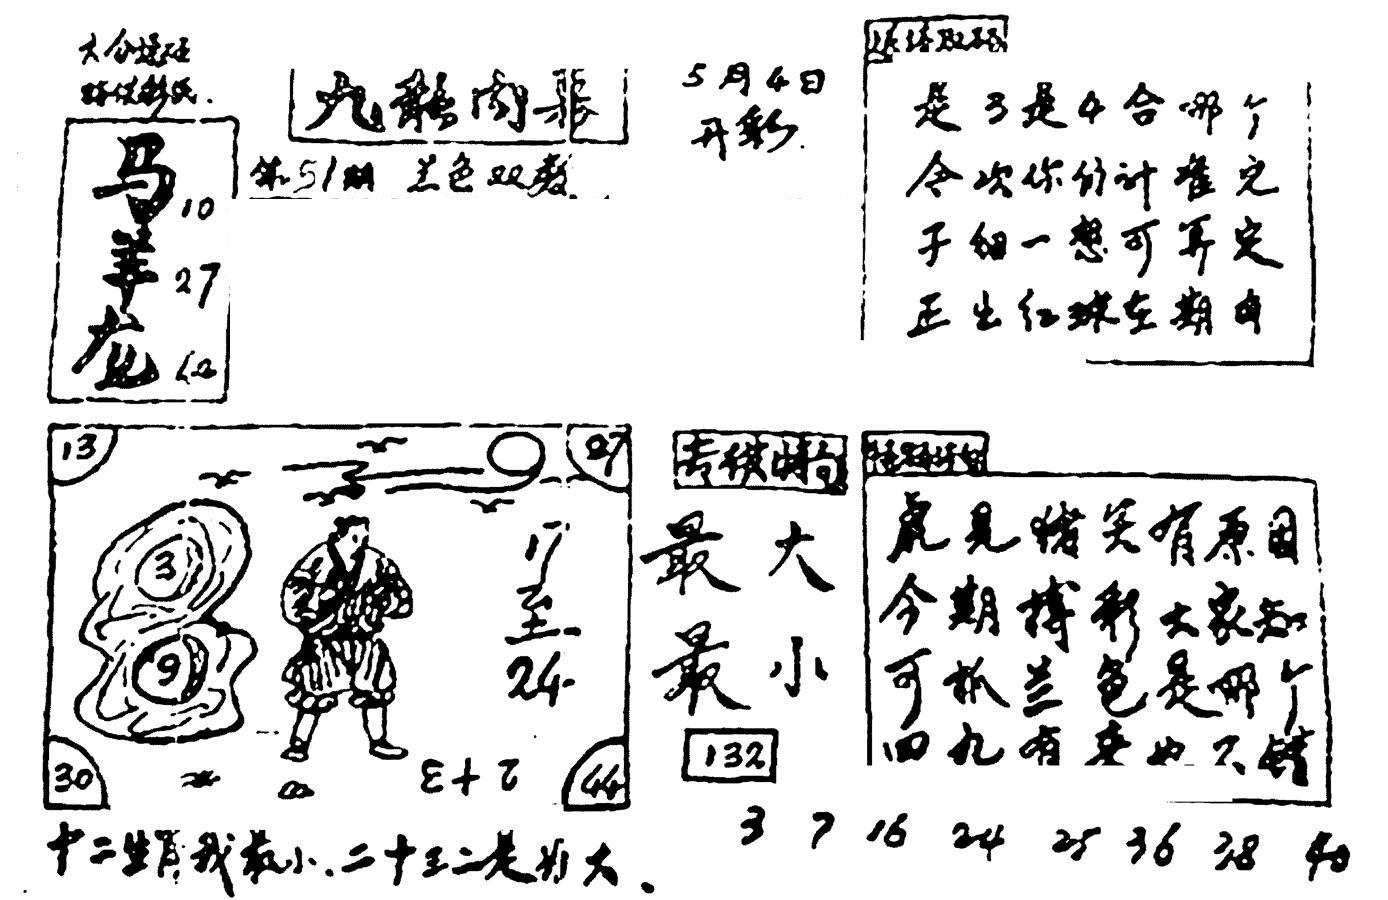 马 10
羊 27
龙 12
九龍内幕
第51期 兰色双数
5月4日
开彩.
是3是4合哪个
今次你们计准定
子细一想可算定
正出红球在期内
13
27
3
9
17
至
24
30
2+3
44
十二生肖我最小.二十五二是为大.
最大
最小
132
虎见猪笑有原因
今期搏彩大家知
可抓兰色是哪个
四九有来也不错
3 7 16 24 25 36 38 40